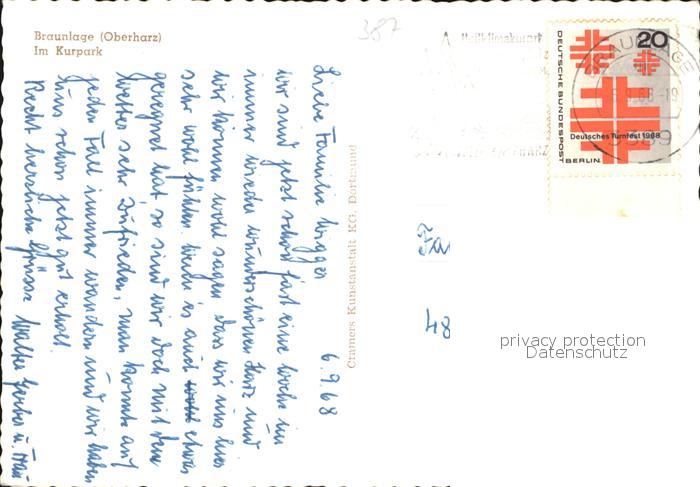 Braunlage (Oberharz)
Im Kurpark
387
Heilklimakurort
20
DEUTSCHE BUNDESPOST
BERLIN
Deutsches Turnfest 1968
BRAUNLAGE
6.9.68-19
3389
6.9.68
Liebe Familie
wir sind jetzt schon fast eine Woche im
immer wieder wunderschönen Harz und
wir können wohl sagen dass wir uns hier
sehr wohl fühlen. Wenn es auch etwas
geregnet hat so sind wir doch mit dem
Wetter sehr zufrieden, man konnte auf
jeden Fall immer wandern und wir haben
uns schon jetzt gut erholt.
Recht herzliche Grüsse Walter Gerber u. Frau
Cramers Kunstanstalt KG. Dortmund
Fa
48
privacy protection
Datenschutz